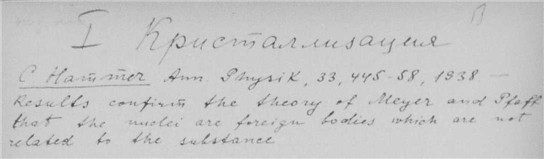 I Кристаллизация
C Hammer Ann. Physik, 33, 445-58, 1938 —
Results confirm the theory of Meyer and Pfaff
that the nuclei are foreign bodies which are not
related to the substance